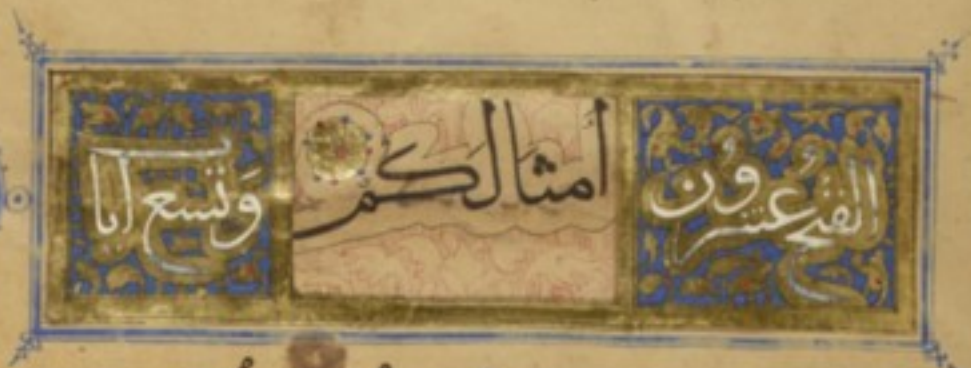 الفتح عشرون امثالكم وتسع ايات